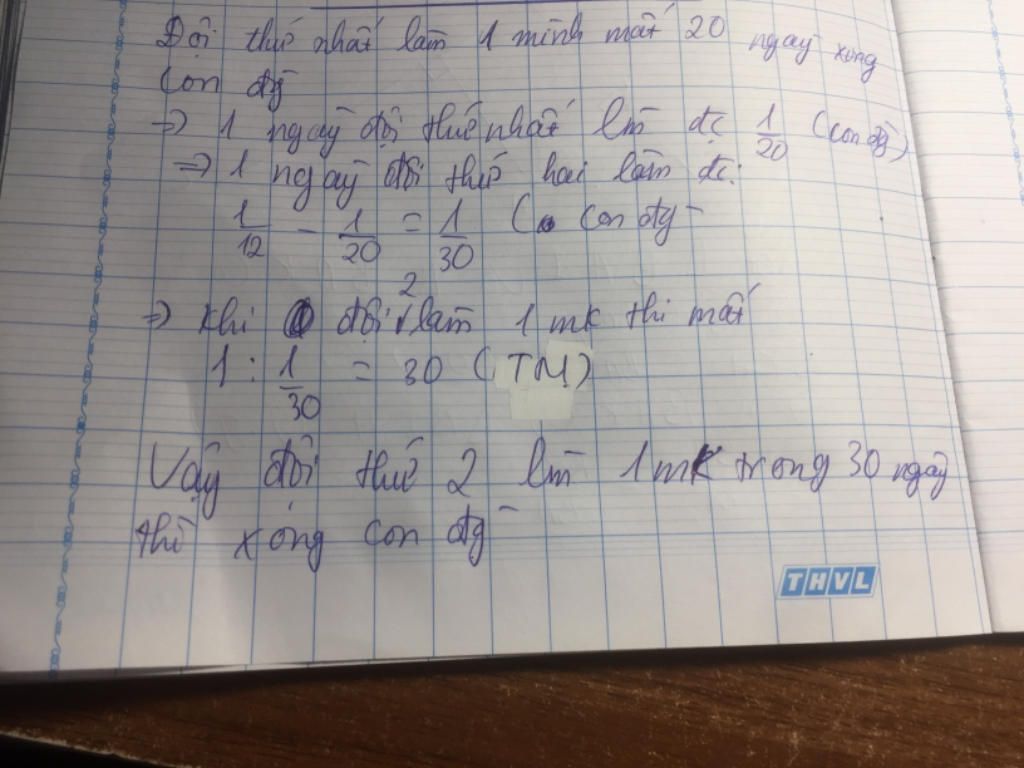 Đội thứ nhất làm 1 mình mất 20 ngày xong
con đg
=> 1 ngày đội thứ nhất lm đc 1/20 (con đg)
=> 1 ngày đội thứ hai làm đc:
1/12 - 1/20 = 1/30 ( con đg
=> Khi đội 2 làm 1 mk thì mất
1 : 1/30 = 30 (TM)
Vậy đội thứ 2 lm 1 mk trong 30 ngày
thì xong con đg
THVL